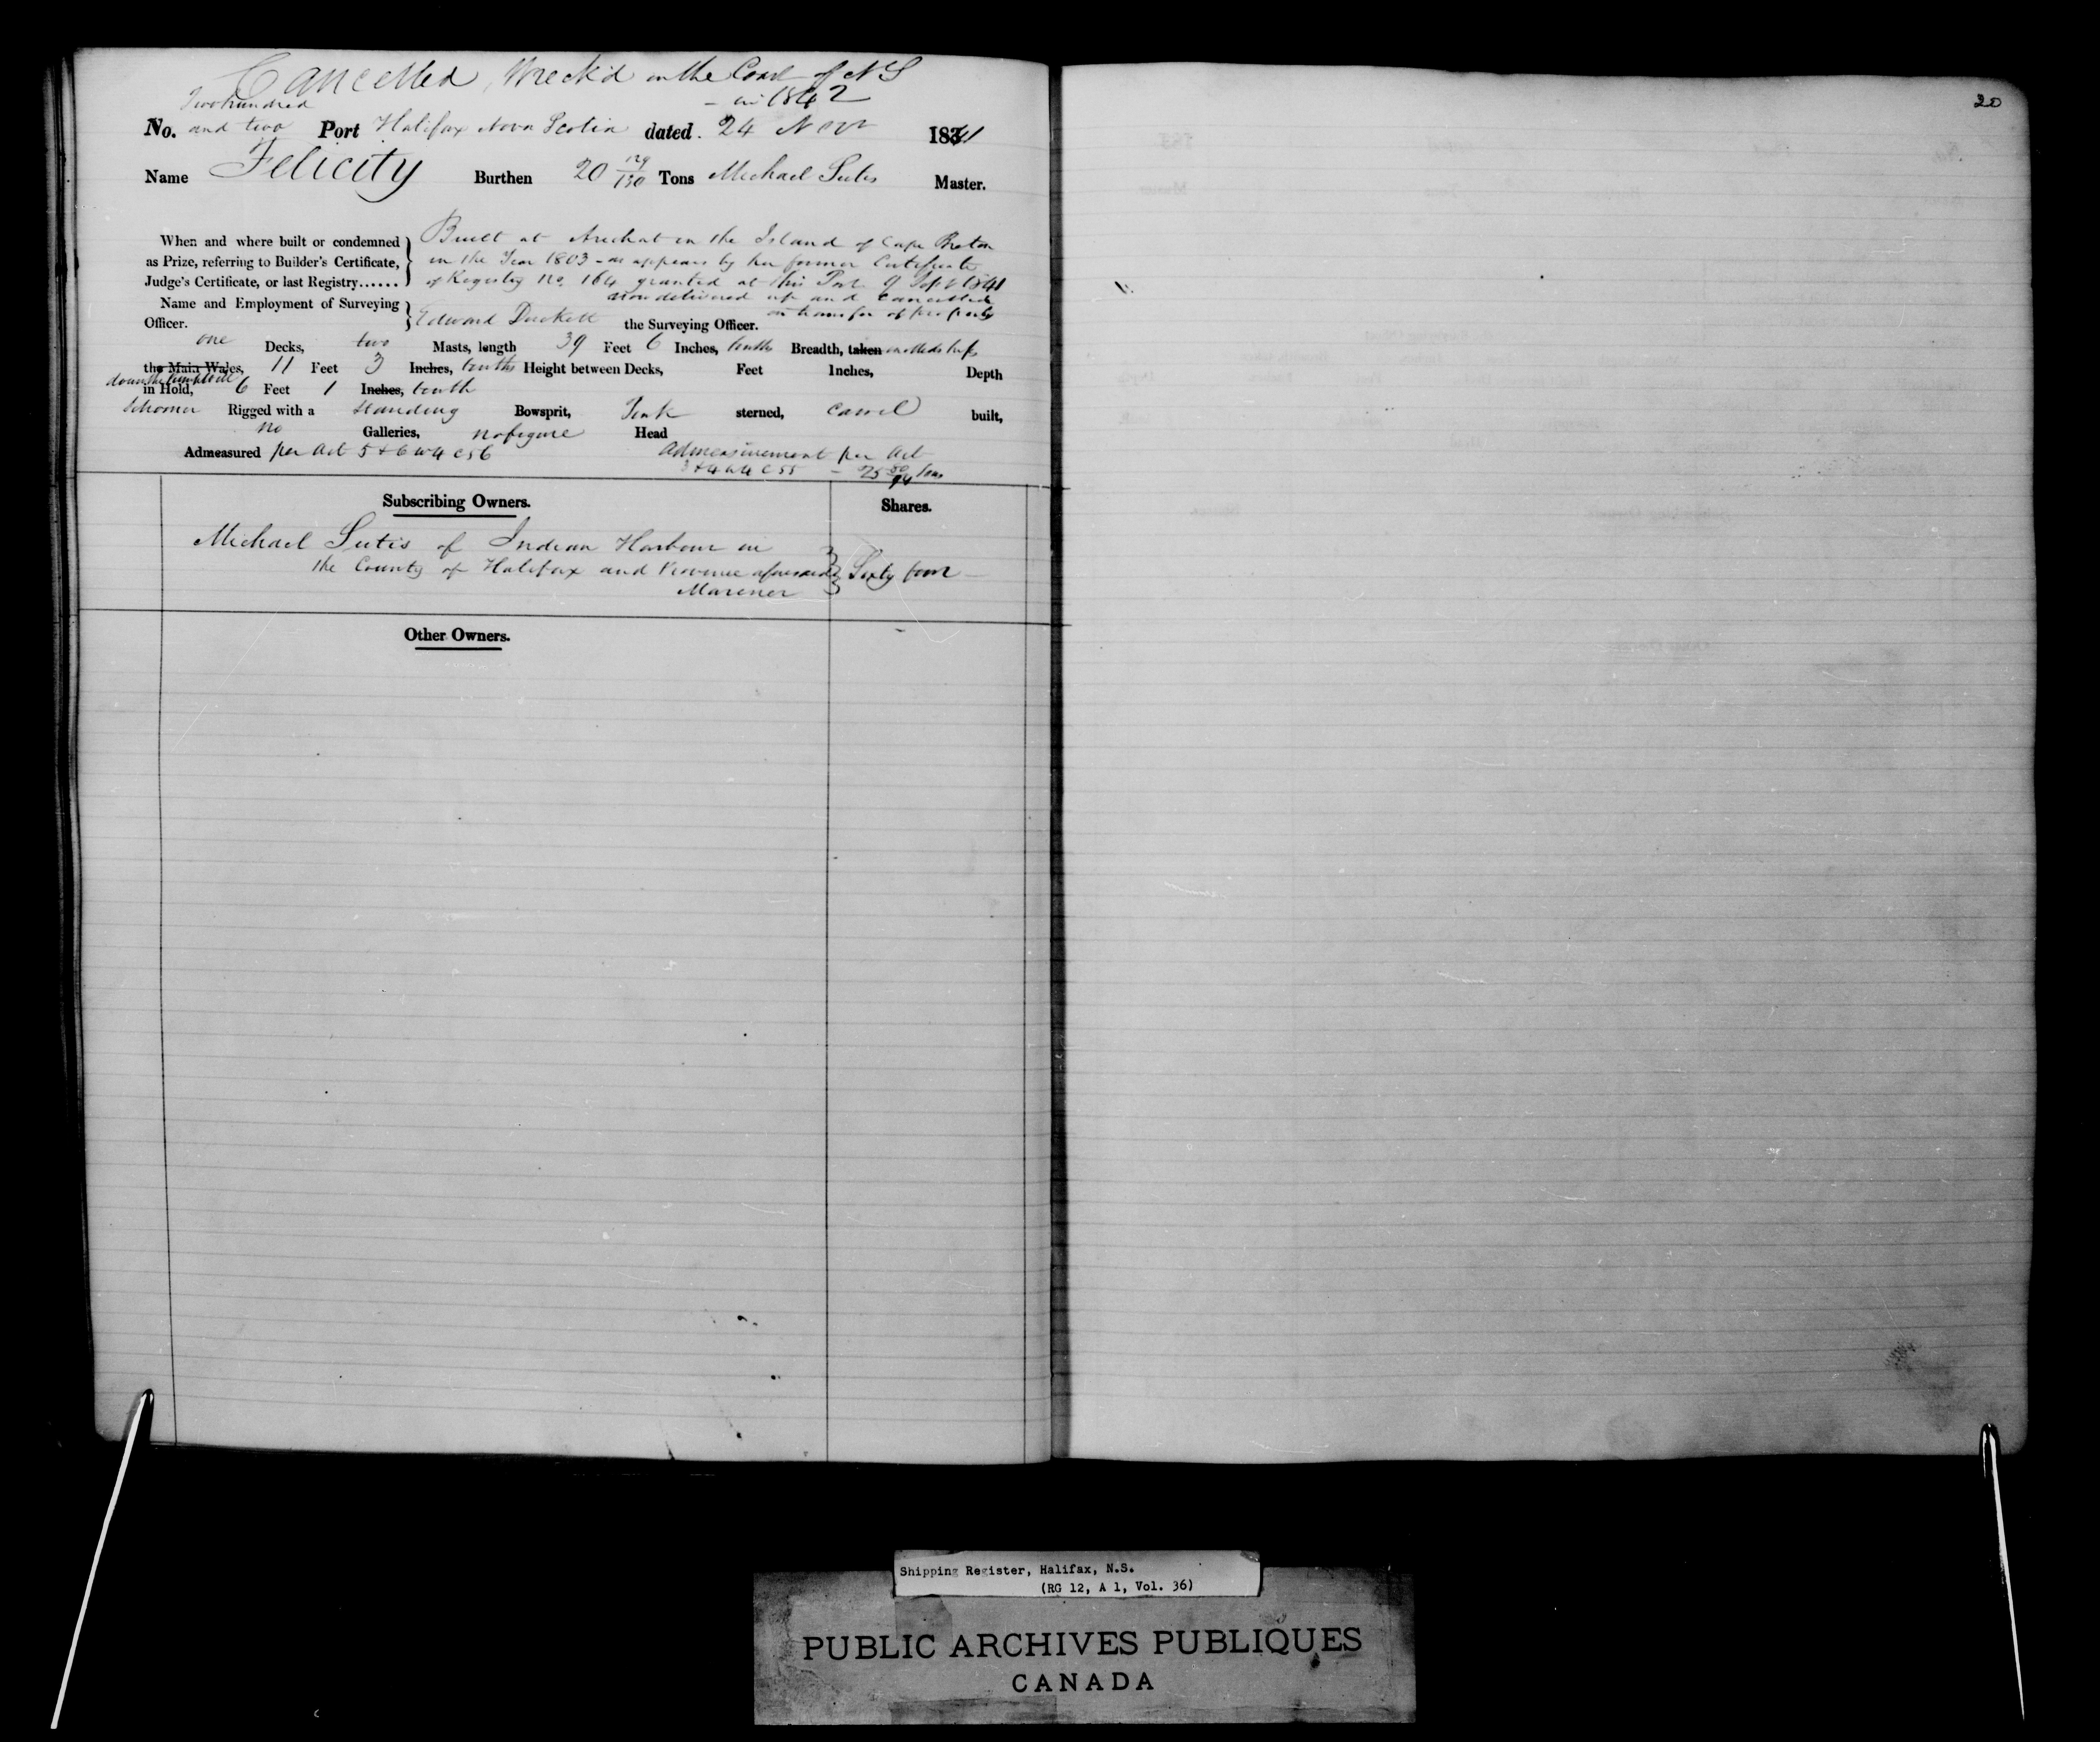 Cancelled, Wreck'd on the Coast of N S
- in 1842
Two hundred
No. and two Port Halifax Nova Scotia dated. 24 Novr 1841
Name Felicity Burthen 20 129/130 Tons Michael Sutis Master.
When and where built or condemned
as Prize, referring to Builder's Certificate,
Judge's Certificate, or last Registry......
Built at Arichat in the Island of Cape Breton
in the Year 1803 - as appears by her former Certificate
of Registry No. 164 granted at this Port 9 Sept 1841
now delivered up and Cancelled
on transfer of property
Name and Employment of Surveying
Officer.
Edward Duckett the Surveying Officer.
one Decks, two Masts, length 39 Feet 6 Inches, tenths Breadth, taken amidships
the Main Wales, 11 Feet 3 Inches, tenths Height between Decks, Feet Inches, Depth
in Hold, 6 Feet 1 Inches, tenth
Schooner Rigged with a Standing Bowsprit, Pink sterned, Carvel built,
no Galleries, no figure Head
Admeasured per Act 5 & 6 W 4 C 56
Admeasurement per Act
3 & 4 W 4 C 55 - 25 50/94 Tons
Subscribing Owners.
Shares.
Michael Sutis of Indian Harbour in
the County of Halifax and Province aforesaid
Mariner
Sixty four
Other Owners.
20
Shipping Register, Halifax, N.S.
(RG 12, A 1, Vol. 36)
PUBLIC ARCHIVES PUBLIQUES
CANADA